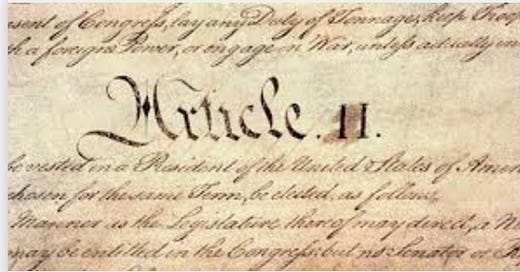 sent of Congress, lay any Duty of Tonnage, keep Troop
h a foreign Power, or engage in War, unless actually in
Article. II.
be vested in a President of the United States of Amer
chosen for the same Term, be elected, as follows
Manner as the Legislature thereof may direct, a N
may be entitled in the Congress: but no Senator or R